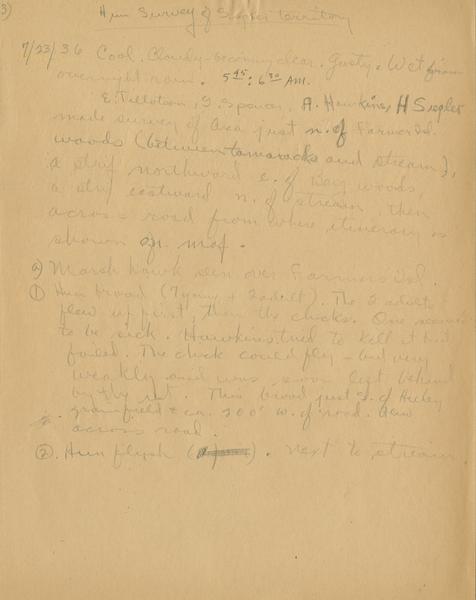 3)
Hun Survey of Siegler territory
7/23/36 Cool, Cloudy - becoming clear. Gusty. Wet from
overnight rain. 5 45 : 6 30 AM.
E. Tillotson, S. Spencer, A. Hawkins, H Siegler
made survey of area just n. of Farmer's Isl.
woods (between tamaracks and stream),
a strip northward e. of Dary woods,
a strip eastward n. of stream, then
across road from where itinerary is
shown on map.
a) Marsh hawk seen over Farmers Isl.
① Hun brood (7 young + 2 adult). The 2 adults
flew up first, then the chicks. One seemed
to be sick. Hawkins tried to kill it but
failed. The chick could fly - but very
weakly and was soon left behind
by the rest. This brood just s. of
grainfield + ca. 200' w. of road. flew
across road.
②. Hun flush ( ). next to stream